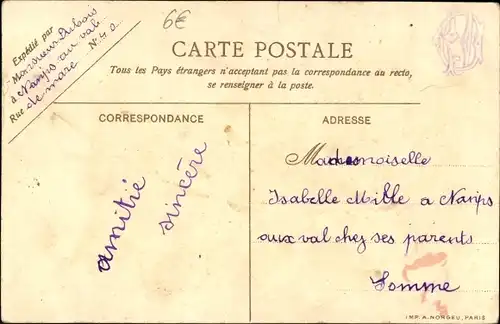 6€
Expédié par
Monsieur Dubois
à Namps au val
Rue de mare N° 4 a
CARTE POSTALE
Tous les Pays étrangers n'acceptent pas la correspondance au recto,
se renseigner à la poste.
CORRESPONDANCE
amitié
sincère
ADRESSE
Mademoiselle
Isabelle Mille a Namps
aux val chez ses parents
Somme
IMP. A. NORGEU, PARIS